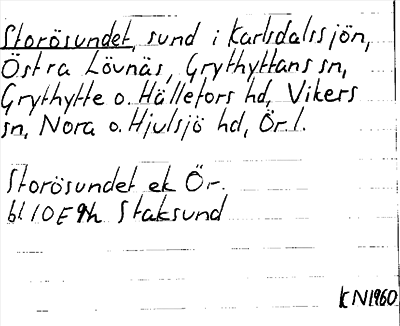 Storösundet, sund i Karlsdalssjön,
Östra Lövnäs, Grythyttans sn,
Grythytte o. Hällefors hd, Vikers
sn, Nora o. Hjulsjö hd, Ör l.
Storösundet ek Ör.
bl 10E9h Staksund
KN1960